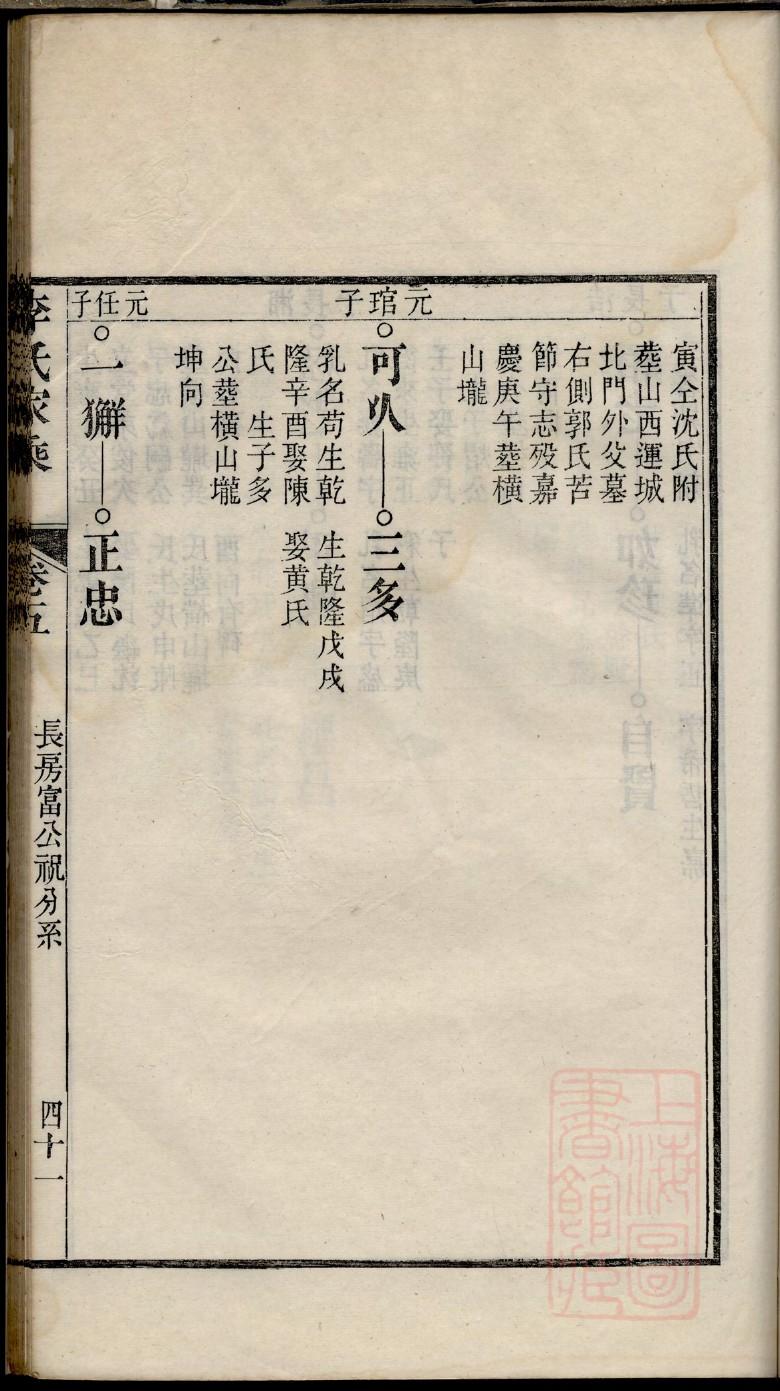 寅仝沈氏附
塟山西運城
北門外父墓
右側郭氏苦
節守志殁嘉
慶庚午塟橫
山壠
元琯子
可火
三多
乳名苟生乾
隆辛酉娶陳
氏 生子多
公塟橫山壠
坤向
生乾隆戊戌
娶黄氏
元任子
一獬
正忠
李氏家乘
卷五
長房富公祝分系
四十一
上海圖
書館藏